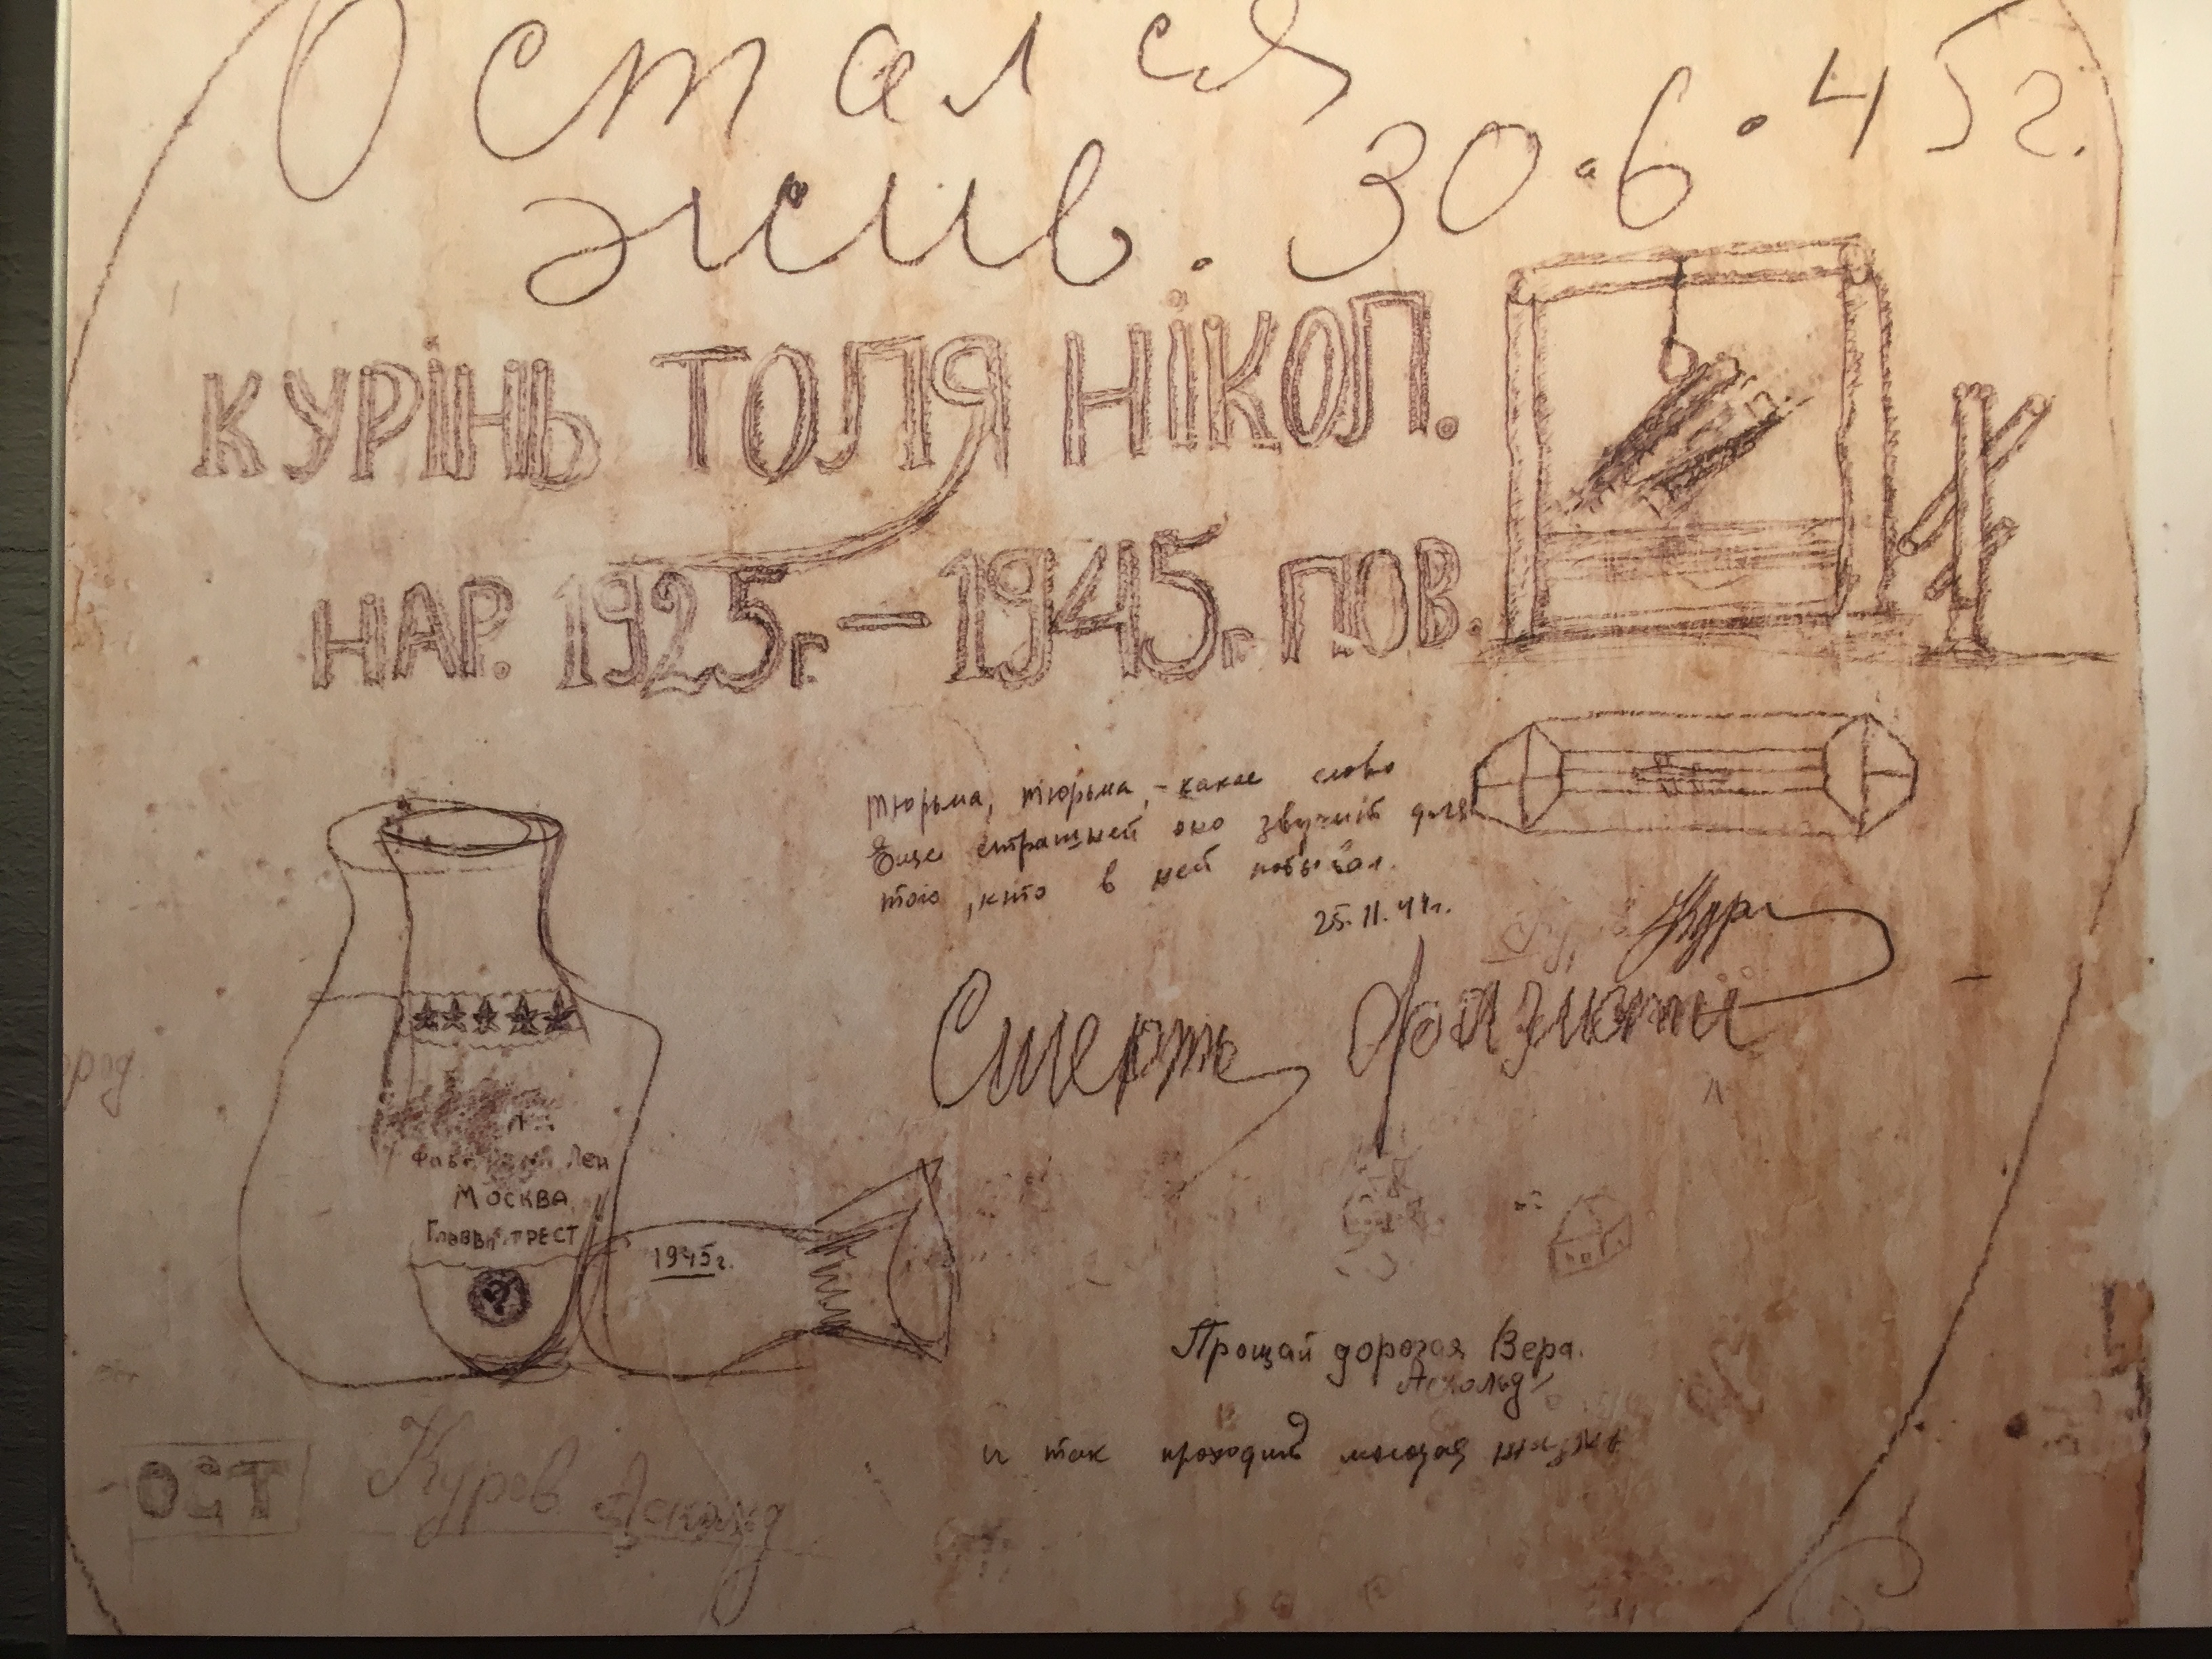 Остался
жив. 30.6.45г.
КУРІНЬ ТОЛЯ НІКОП.
НАР. 1925г.—1945г. ПОВ.
Тюрьма, тюрьма, - какое слово
Еще страшней оно звучит для
того, кто в ней побывал.
25.11.44г.
Кур
Смерть
МОСКВА
ТРЕСТ
1945г.
Прощай дорогая Вера.
Аскольд
и так проходит молодая жизнь
ОСТ
Куров Аскольд